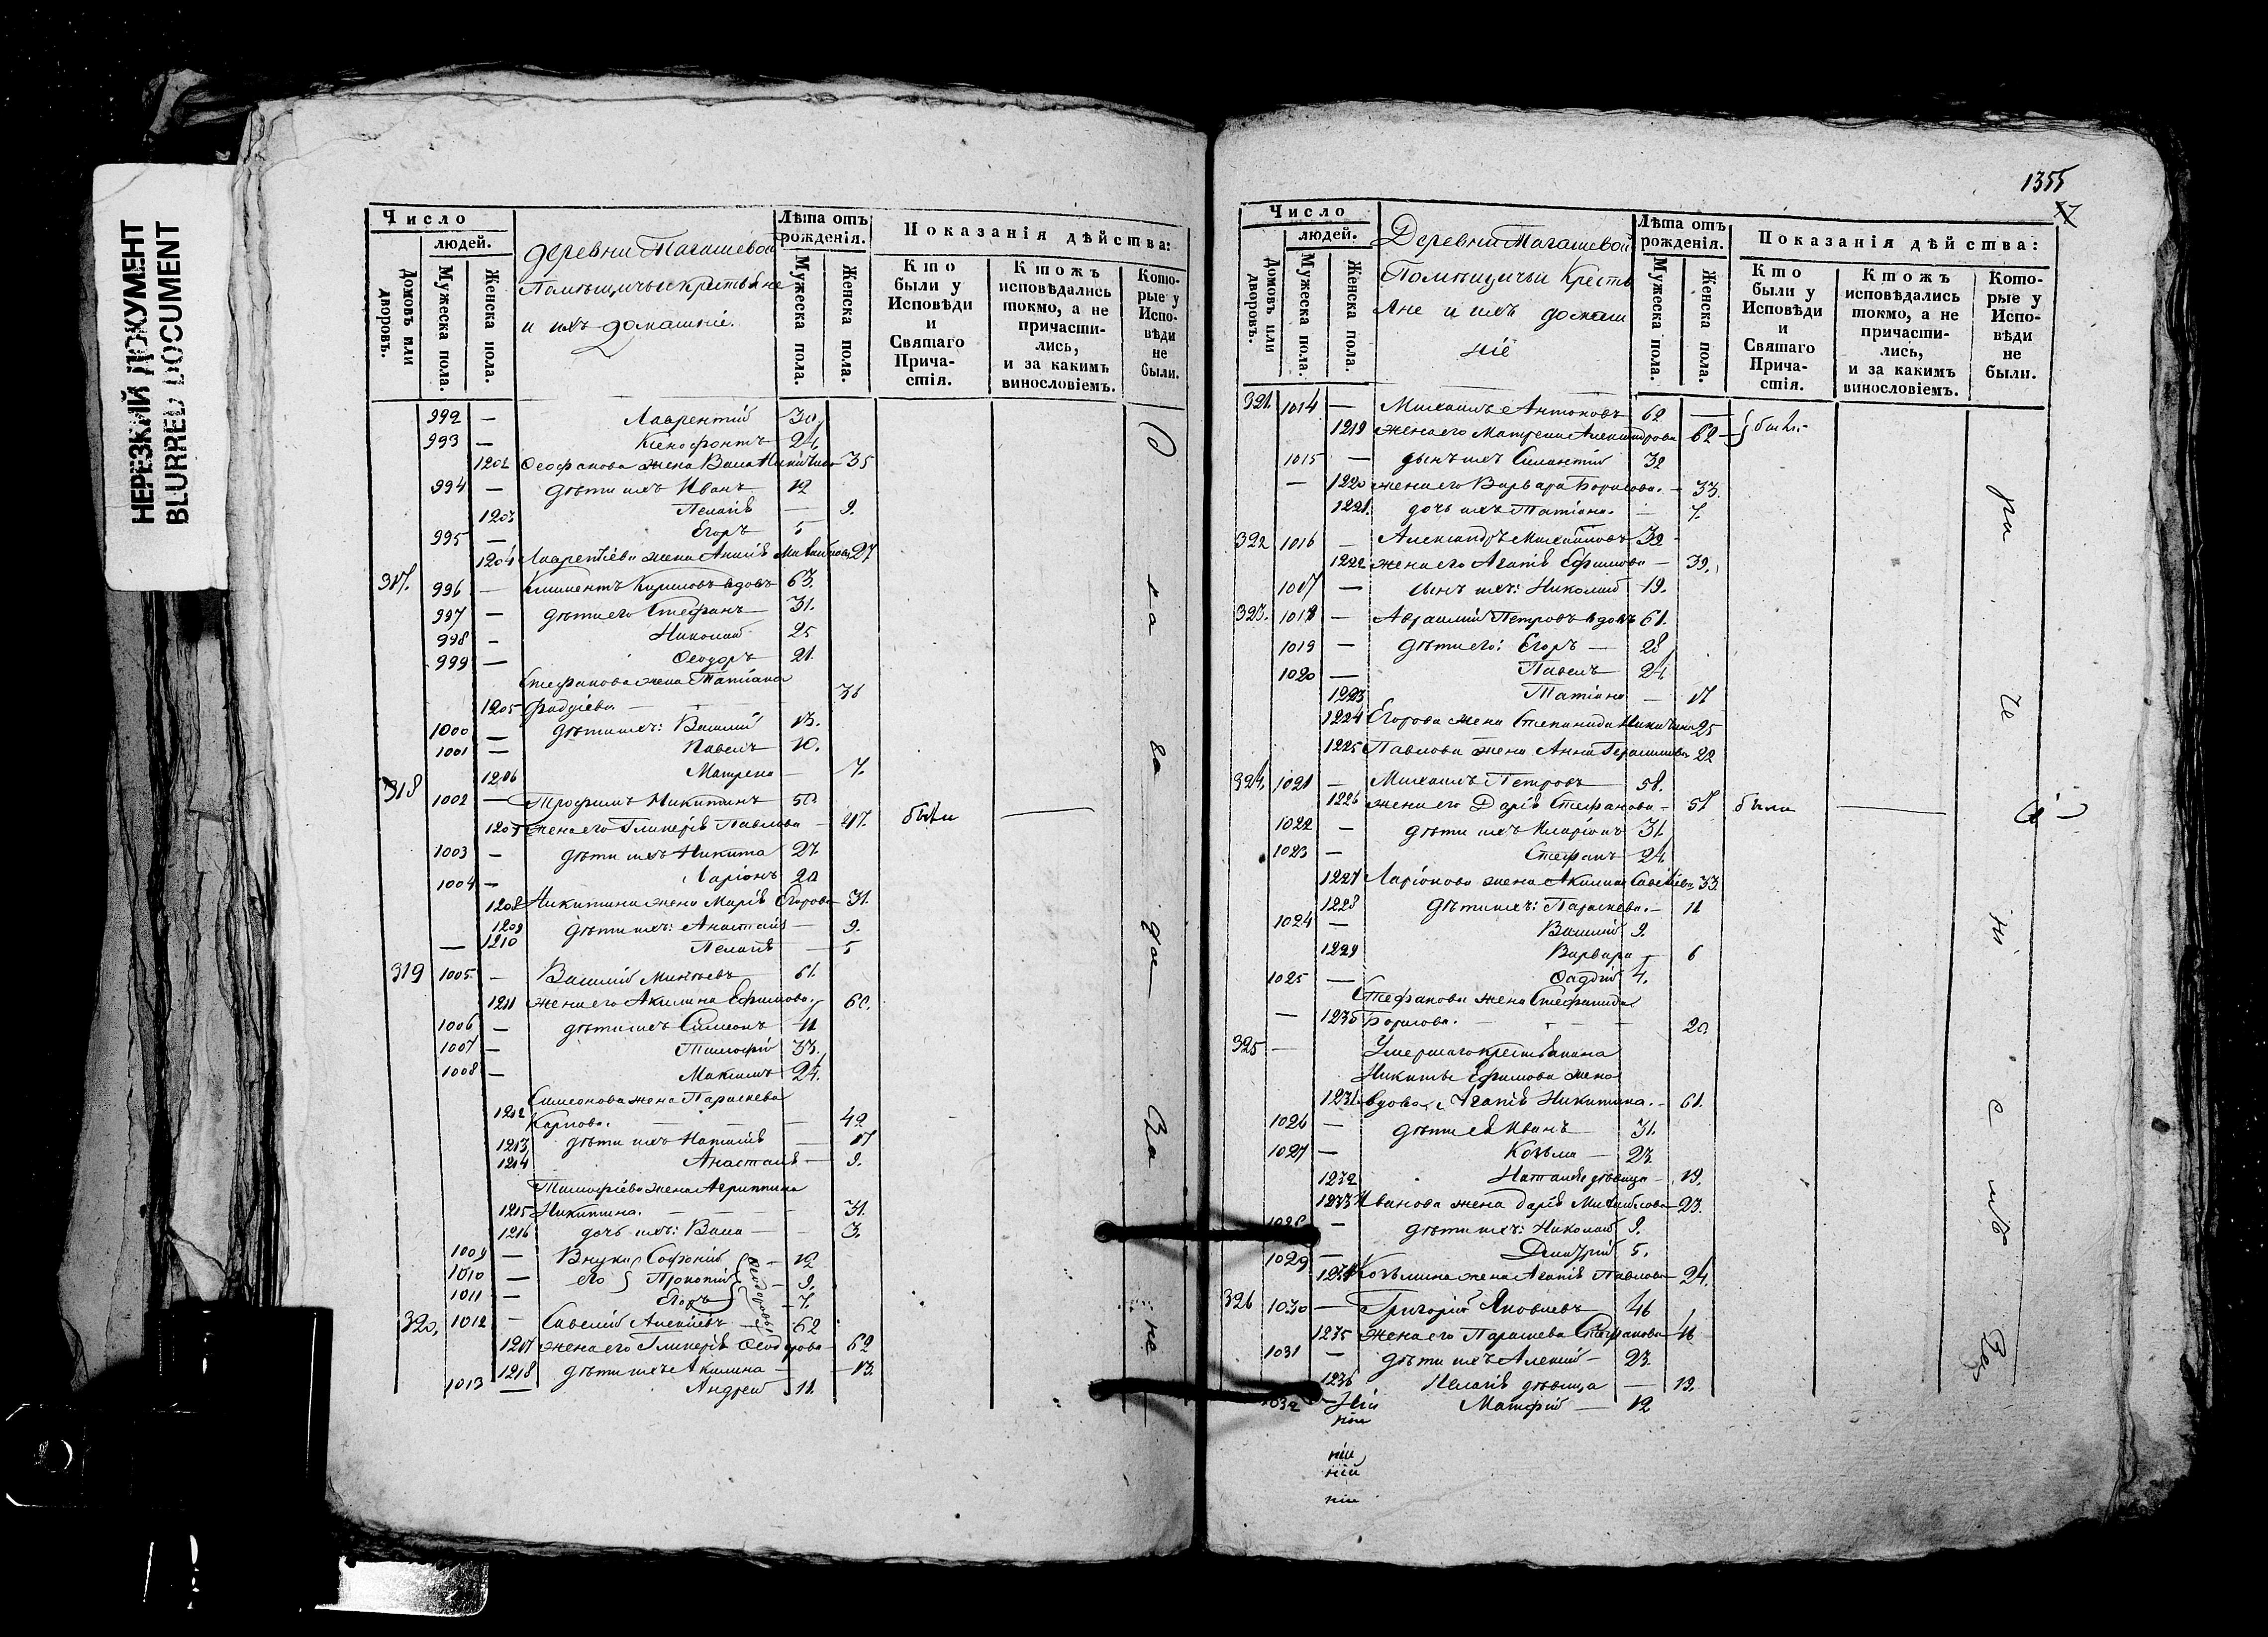 НЕРЕЗКИЙ ДОКУМЕНТ
BLURRED DOCUMENT
Число
людей.
Домовъ или дворовъ.
Мужеска пола.
Женска пола.
деревни Тагашевой
Помѣщичьи крестьяне
и ихъ домашніе.
Лѣта отъ рожденія.
Мужеска пола.
Женска пола.
Показанія дѣйства:
Кто были у Исповѣди и Святаго Прича-стія.
Ктожъ исповѣдались токмо, а не причасти-лись, и за какимъ винословіемъ.
Кото-рые у Испо-вѣди не были.
992 — Лаврентій 30
993 — Ксенофонтъ 24
1202 Ѳеофанова жена Васса Никитина 35
994 — дѣти ихъ Иванъ 12
1203 Пелагія — 9.
995 — Егоръ 5
1204 Лаврентіева жена Анисія Михайлова 27
317. 996 — Климентъ Кириловъ вдовъ 63.
997 — дѣти его Стефанъ 31.
998 — Николай 25
999 — Ѳеодоръ 21.
Стефанова жена Татіана
1205 Фаддіева — 36
1000 — дѣти ихъ: Василій 13.
1001 — Павелъ 10.
1206 Матрена — 7.
318 1002 — Трофимъ Никитинъ 50
1207 жена его Гликерія Павлова — 47. были
1003 — дѣти ихъ Никита 27.
1004 — Ларіонъ 20
1208 Никитина жена Марія Егорова — 31.
1209 дѣти ихъ: Анастасія — 9.
— 1210 Пелагія — 5
319 1005 — Василій Минѣевъ 61.
1211 жена его Акилина Ефимова. 60.
1006 — дѣти ихъ Симеонъ 41
1007 — Тимофій 33.
1008 — Максимъ 24.
Симеонова жена Параскева
1212 Карпова. — 42
1213 дѣти ихъ Наталія — 17
1214 Анастасія — 9.
Тимофіева жена Агриппина
1215 Никитина. — 31.
1216 дочь ихъ: Васса — 3.
1009 — Внуки Софоній — 12
1010 — его Прокопій — 9.
1011 — Егоръ — 7.
Ѳеодоровы
320. 1012 — Савелій Алексіевъ — 62
1217 жена его Гликерія Ѳеодорова — 62
1218 дѣти ихъ Акилина — 13.
1013 — Андрей 11.
1355
Число
людей.
Домовъ или дворовъ.
Мужеска пола.
Женска пола.
Деревни Тагашевой
Помѣщичьи Кресть
Яне и ихъ домаш
ніе
Лѣта отъ рожденія.
Мужеска пола.
Женска пола.
Показанія дѣйства:
Кто были у Исповѣди и Святаго Прича-стія.
Ктожъ исповѣдались токмо, а не причасти-лись, и за какимъ винословіемъ.
Кото-рые у Испо-вѣди не были.
321. 1014 — Михаилъ Антоновъ 62 —
1219 жена его Матрена Александрова 62 —
1015 — сынъ ихъ Силантій 32
— 1220 жена его Варвара Борисова. — 33.
1221. дочь ихъ Татіана. — 7.
322 1016 — Александръ Михайловъ 39
1222 жена его Агапія Ефимова — 39.
1017 — сынъ ихъ: Николай 19.
323. 1018 — Авраамій Петровъ вдовъ 61.
1019 — дѣти его: Егоръ — 28
1020 — Павелъ 24
1223 Татіана — 17
1224 Егорова жена Степанида Никитина 25
1225 Павлова жена Анна Герасимова 22
324. 1021 — Михаилъ Петровъ 58.
1226 жена его Дарія Стефанова — 57 были
1022 — дѣти ихъ Иларіонъ 31.
1023 — Стефанъ 24
1227 Ларіонова жена Акилина Савельева 33.
1228 дѣти ихъ: Параскева. — 11
1024 — Василій 9.
1229 Варвара — 6
1025 — Ѳаддій 4.
Стефанова жена Стефанида
— 1230 Борисова. — 20.
325 — Умершаго крестьянина
Никиты Ефимова жена
1231 вдова Агапія Никитина. — 61.
1026 — дѣти ея Иванъ — 31.
1027 — Козьма — 23.
1232 Наталія дѣвица — 19.
1233 Иванова жена Дарія Михайлова — 23.
1028 — дѣти ихъ: Николай 9.
1029 — Дмитрій 5.
1234 Козьмина жена Агапія Павлова — 24.
326 1030 — Григорій Яковлевъ 46
1235 жена его Параскева Стефанова 46
1031 — дѣти ихъ Алексій — 23.
1236 Пелагія дѣвица — 19.
1032 Матфій — 12
ніи
ніи
ніи